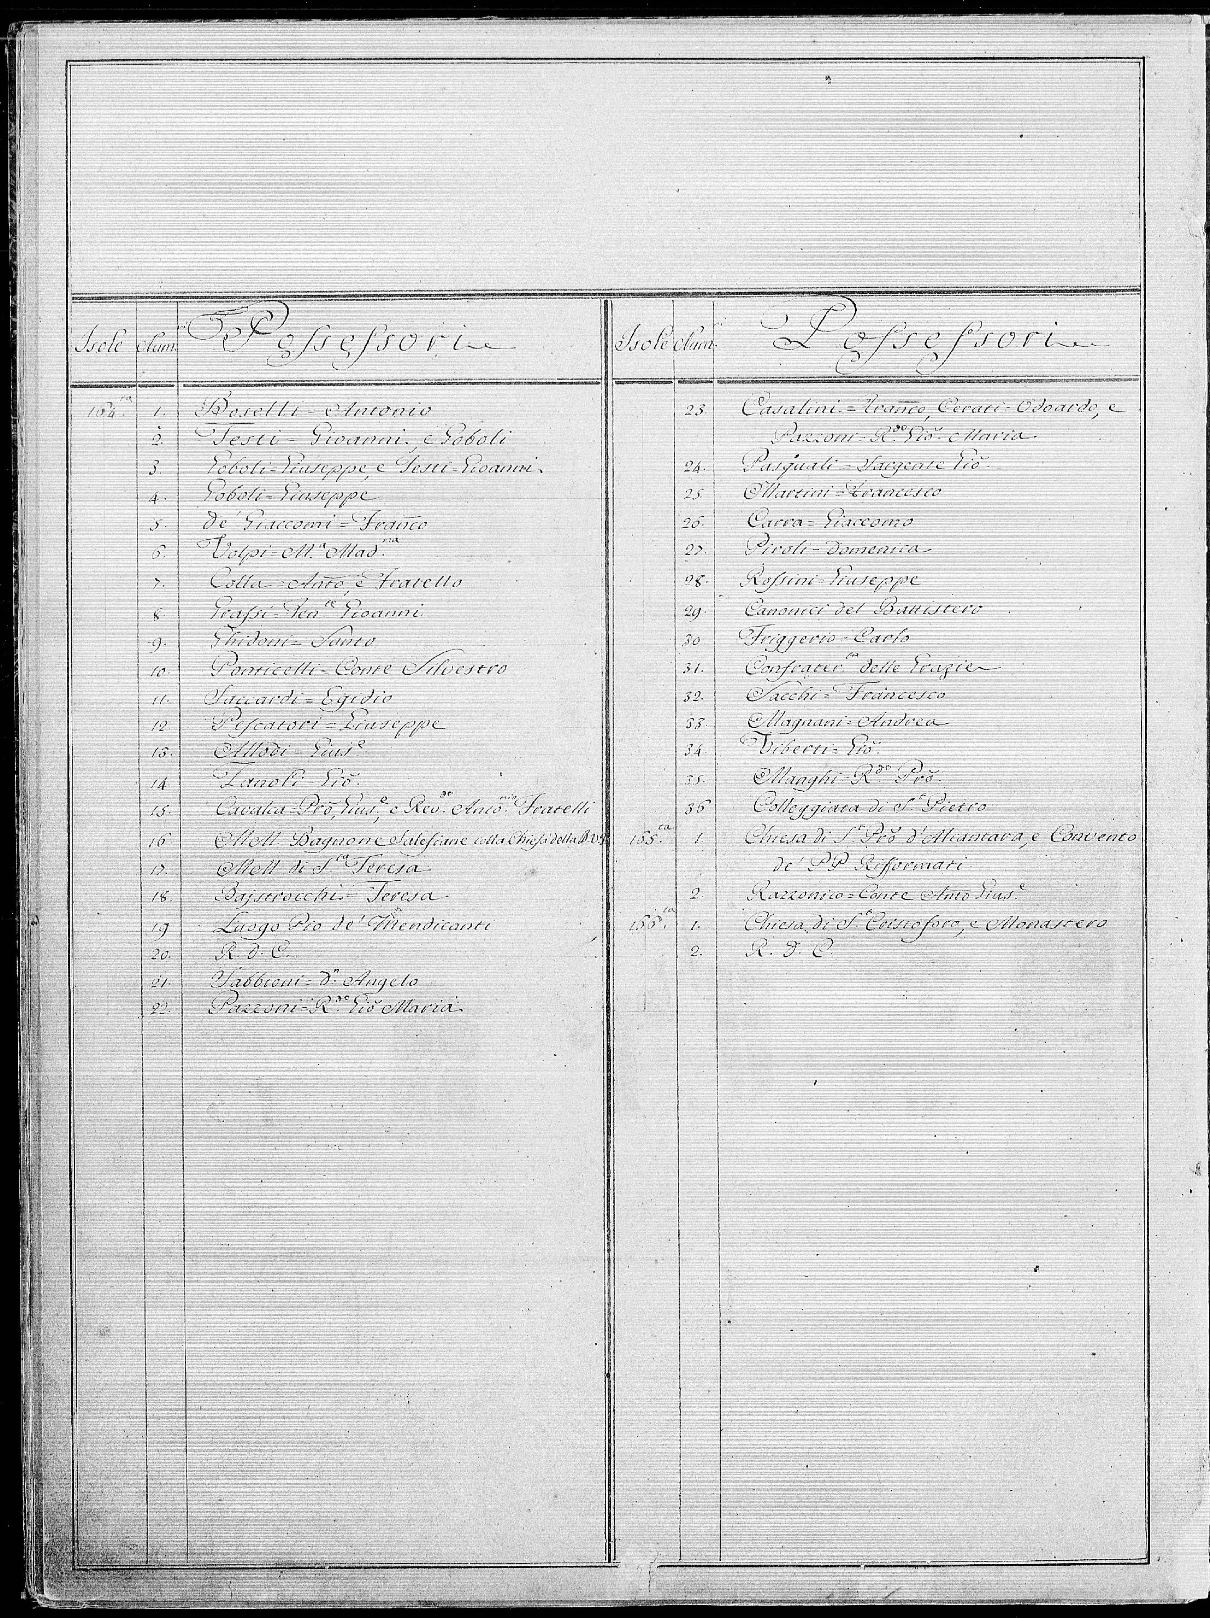 Isole Num.ⁱ Possessori
164.ta 1. Boselli = Antonio
2. Testi = Gioanni, e Goboli
3. Goboli = Giuseppe, e Testi = Gioanni
4. Goboli = Giuseppe
5. de' Giaccomi = Franco
6. Volpi = M.a Mad.na
7. Colla = Anto, e Fratello
8. Grassi = Ten.te Gioanni
9. Ghidoni = Santo
10. Ponticelli = Conte Silvestro
11. Saccardi = Egidio
12. Piscatori = Giuseppe
13. Allodi = Gius.e
14. Zanoli = Gio.
15. Cavalca = Pro, Gius.e, e Rev.do Anto Fratelli
16. Mon. Bagnone Salesiane colla Chiesa della B.V.
17. Mon. di S.ta Teresa
18. Bajstrocchi = Teresa
19. Luogo Pio de' Mendicanti
20. R. D. C.
21. Sabbioni = D.n Angelo
22. Pazzoni = R.do Gio Maria
Isole Num.ⁱ Possessori
23. Casalini = Franco, Cerati = Odoardo, e
Pazzoni = R.do Gio. Maria
24. Pasquali = Sargente Gio.
25. Martini = Francesco
26. Carra = Giaccomo
27. Piroli = Domenica
28. Rossini = Giuseppe
29. Canonici del Battistero
30. Friggerio = Carlo
31. Confrater.ta delle Grazie
32. Sacchi = Francesco
33. Magnani = Andrea
34. Viberti = Gio.
35. Maaghi = R.do Pro.
36. Colleggiata di S. Pietro
165.ta 1. Chiesa di S. Pro d'Alcantara, e Convento
de' PP. Rifformati
2. Razzonico = Conte Anto Gius.e
166.ta 1. Chiesa di S. Cristoforo, e Monastero
2. R. D. C.